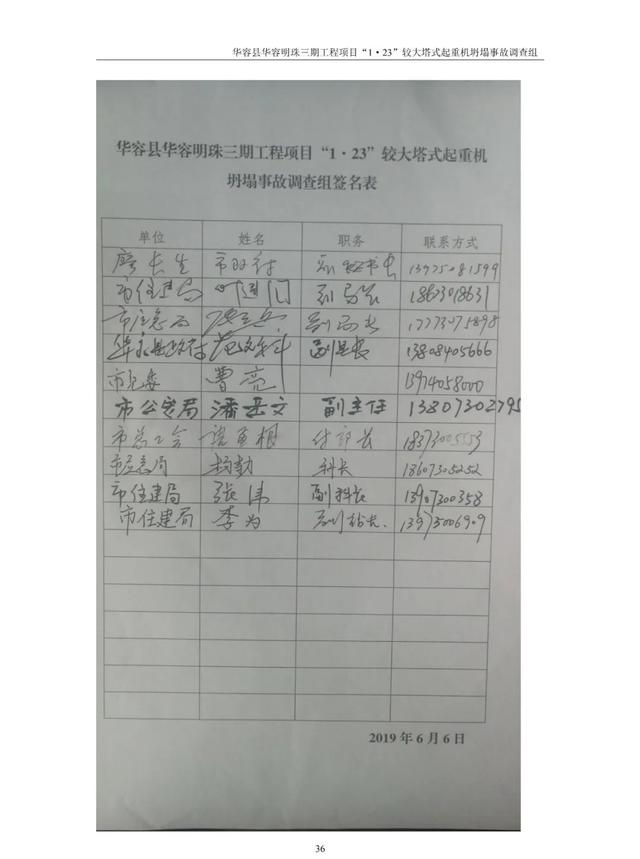 华容县华容明珠三期工程项目“1·23”较大塔式起重机坍塌事故调查组
华容县华容明珠三期工程项目“1·23”较大塔式起重机
坍塌事故调查组签名表
单位 姓名 职务 联系方式
廖长生 市政府 副秘书长 13975081599
市住建局 副局长 18673018631
市应急局 副局长
华容县政府 范文科 副县长 13808405666
市纪委 曹亮 13974058000
市公安局 潘岳文 副主任 13807302795
市总工会 付部长 18373005553
市应急局 杨勤 科长 18607305252
市住建局 张伟 副科长 13907300358
市住建局 李为 副站长 13975006909
2019年6月6日
36